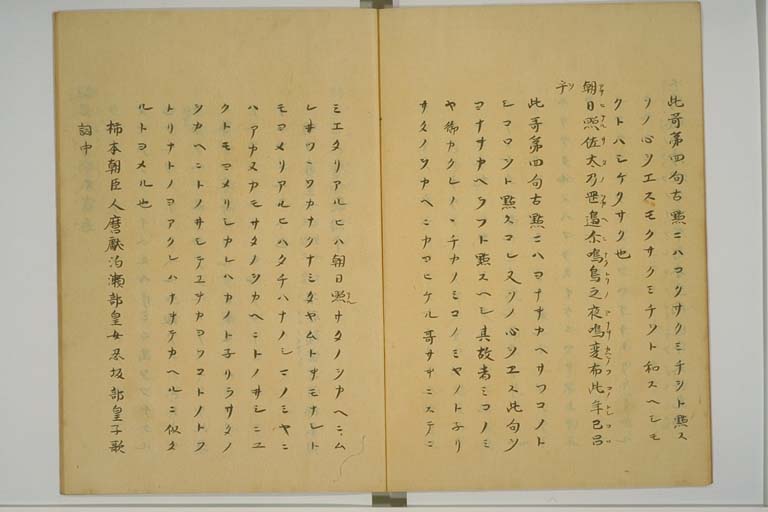 此哥第四句古點ニハコクサクミチシト點ス
ソノ心ヲエスモクサクミチヲト和スヘシモ
クトハシケクサク也
朝日照佐太乃罡邊尓鳴鳥之夜鳴變布此年己呂
乎
此哥第四句古點ニハヨナキカヘサフコノト
シコロヲト點スコレ又ソノ心ヲエス此句ヲ
ヨナキカヘラフト點スヘシ其故者ミコノミ
ヤ御カクレノヽチカノミコノミヤノト子リ
サタノヲカヘニカヨヒケル哥サキニステニ
ミエタリアルヒハ朝日照サタノヲカヘニム
レヰツヽワカナクナミタヤムトキモナシト
モヨメリアルヒハタチハナノシマノミヤニ
ハアカスカモサタノヲカヘニトノヰシニユ
クトモヨメリシカレハカノト子リラサタノ
ヲカヘニトノヰシテユキカヨフコトノトフ
トリナトノヨアクレハナキテカヘルニ似タ
ルトヨメル也
柿本朝臣人麿獻泊瀬部皇女忍坂部皇子歌
詞中